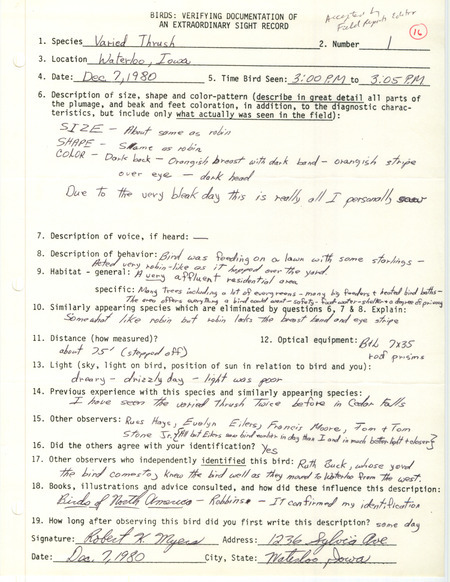 BIRDS: VERIFYING DOCUMENTATION OF
AN EXTRAORDINARY SIGHT RECORD
Accepted by
Field Reports Editor
16
1. Species Varied Thrush 2. Number 1
3. Location Waterloo, Iowa
4. Date: Dec. 7, 1980 5. Time Bird Seen: 3:00 PM to 3:05 PM
6. Description of size, shape and color-pattern (describe in great detail all parts of
the plumage, and beak and feet coloration, in addition, to the diagnostic charac-
teristics, but include only what actually was seen in the field):
SIZE - About same as robin
SHAPE - Same as robin
COLOR - Dark back - Orangish breast with dark band - orangish stripe
over eye - dark head
Due to the very bleak day this is really all I personally saw
7. Description of voice, if heard: —
8. Description of behavior: Bird was feeding on a lawn with some starlings -
Acted very robin-like as it hopped over the yard.
9. Habitat - general: A very affluent residential area
specific: Many Trees including a lot of evergreens - many big feeders & heated bird baths -
The area offers everything a bird could want - safety - food - water - shelter & a degree of privacy
10. Similarly appearing species which are eliminated by questions 6, 7 & 8. Explain:
Somewhat like robin but robin lacks the breast band and eye stripe
11. Distance (how measured)? 12. Optical equipment: B&L 7x35
about 75' (stepped off) roof prisms
13. Light (sky, light on bird, position of sun in relation to bird and you):
dreary - drizzly day - light was poor
14. Previous experience with this species and similarly appearing species:
I have seen the varied Thrush twice before in Cedar Falls
15. Other observers: Russ Hays, Evelyn Eilers, Francis Moore, Tom & Tom
Stone Jr. {All but Eilers saw bird earlier in day than I and in much better light & closer}
16. Did the others agree with your identification? Yes
17. Other observers who independently identified this bird: Ruth Buck, whose yard
the bird comes to, knew the bird well as they moved to Waterloo from the west.
18. Books, illustrations and advice consulted, and how did these influence this description:
Birds of North America - Robbins - It confirmed my identification
19. How long after observing this bird did you first write this description? same day
Signature: Robert K. Myers Address: 1236 Sylvia Ave
Date: Dec. 7, 1980 City, State: Waterloo, Iowa